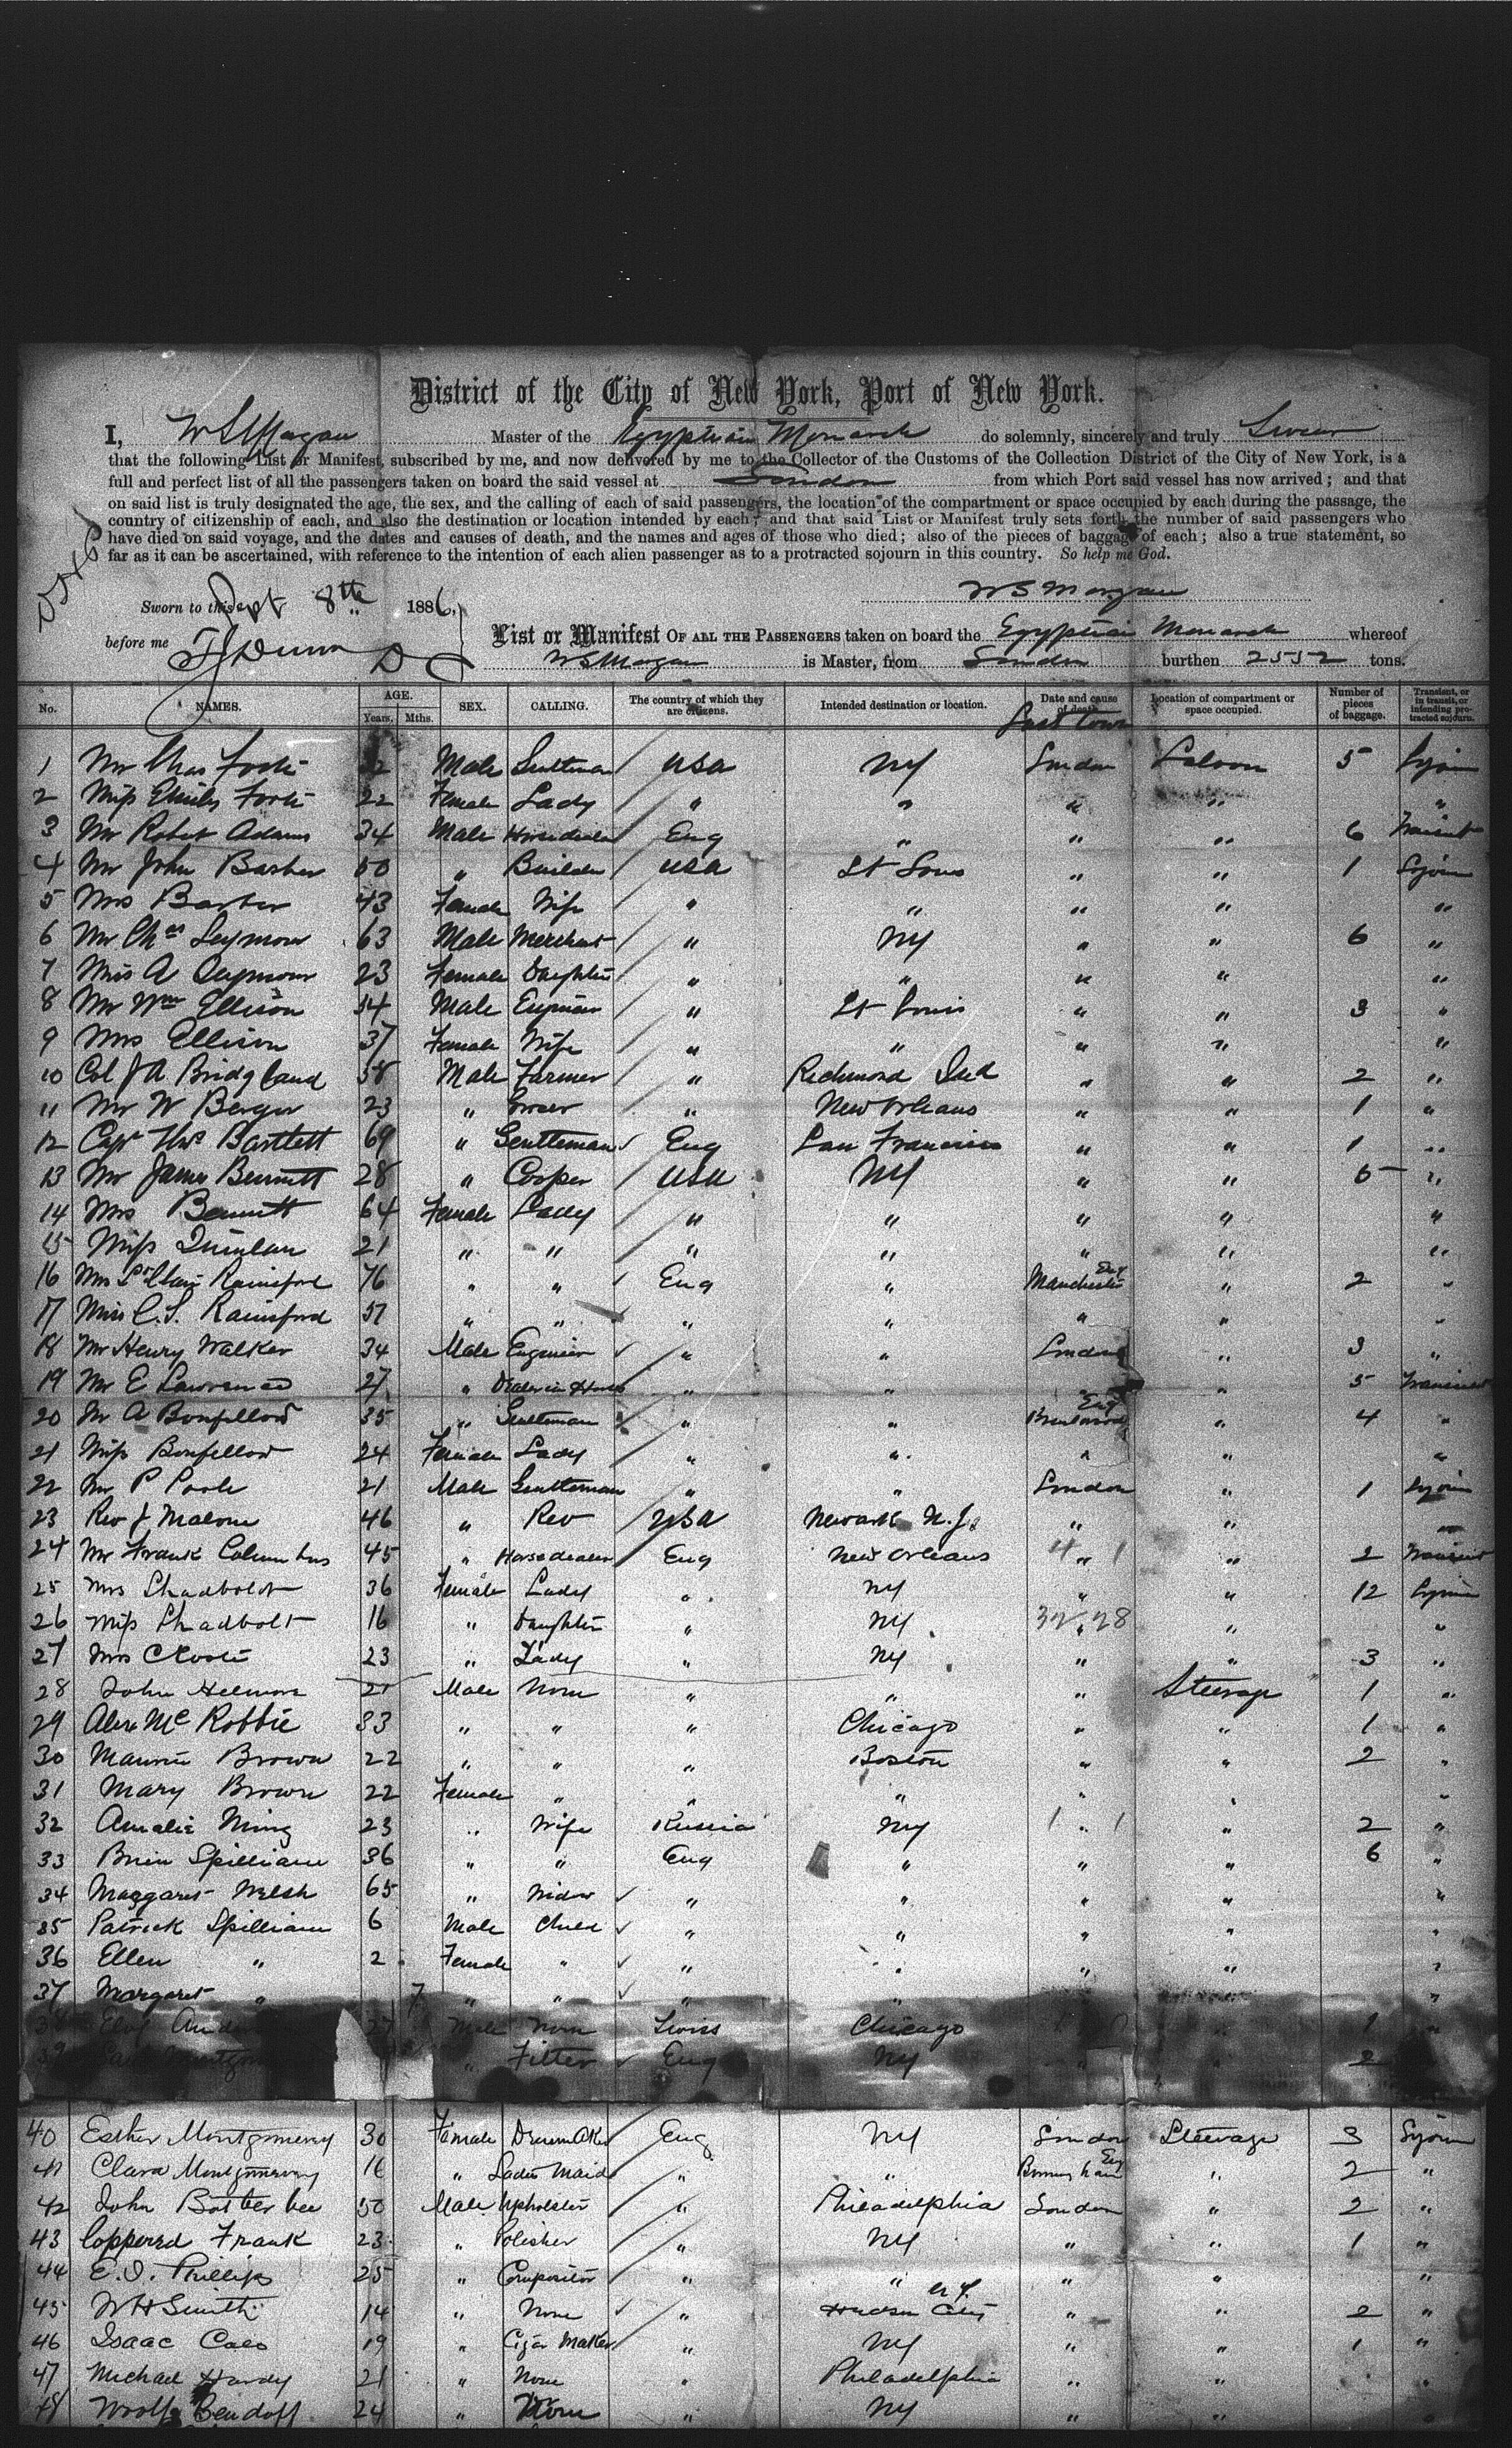 District of the City of New York, Port of New York.
I, W S Morgan Master of the Egyptian Monarch do solemnly, sincerely and truly Swear
that the following List or Manifest, subscribed by me, and now delivered by me to the Collector of the Customs of the Collection District of the City of New York, is a
full and perfect list of all the passengers taken on board the said vessel at London from which Port said vessel has now arrived; and that
on said list is truly designated the age, the sex, and the calling of each of said passengers, the location of the compartment or space occupied by each during the passage, the
country of citizenship of each, and also the destination or location intended by each; and that said List or Manifest truly sets forth the number of said passengers who
have died on said voyage, and the dates and causes of death, and the names and ages of those who died; also of the pieces of baggage of each; also a true statement, so
far as it can be ascertained, with reference to the intention of each alien passenger as to a protracted sojourn in this country. So help me God.
Sworn to this 8th 1886, W S Morgan
before me List or Manifest OF ALL THE PASSENGERS taken on board the Egyptian Monarch whereof
W S Morgan is Master, from London burthen 2552 tons.
No. NAMES. AGE. Years. Mths. SEX. CALLING. The country of which they are citizens. Intended destination or location. Date and cause of death. Location of compartment or space occupied. Number of pieces of baggage. Transient, or in transit, or intending protracted sojourn.
Last town
1 Mr Chas Male Gentleman USA NY London Saloon 5 Sojourn
2 Miss Emily 22 Female Lady " " " " "
3 Mr Robert Adams 34 Male Horsedealer Eng " " " 6 Transient
4 Mr John Barber 50 " Builder USA St Louis " " 1 Sojourn
5 Mrs Barber 43 Female Wife " " " " "
6 Mr Chas Seymour 63 Male Merchant " NY " " 6 "
7 Miss A Seymour 23 Female Daughter " " " " "
8 Mr Wm Ellison 34 Male " St Louis " " 3 "
9 Mrs Ellison 37 Female Wife " " " " "
10 Col J A Bridgland 58 Male Farmer " Richmond Ind " " 2 "
11 Mr W Berger 23 " Grocer " New Orleans " " 1 "
12 Capt Thos Bartlett 69 " Gentleman Eng San Francisco " " 1 "
13 Mr James Bennett 28 " Cooper USA NY " " 5 "
14 Mrs Bennett 64 Female Lady " " " " "
15 Miss Quinlan 21 " " " " " " "
16 Mrs St Clair Rainsford 76 " " Eng " Manchester Eng " 2 "
17 Miss C. S. Rainsford 37 " " " " " " "
18 Mr Henry Walker 34 Male Engineer " " London " 3 "
19 Mr E Lawrence 27 " Dealer in Horses " " " " 5 Transient
20 Mr A Bonfellow 35 " Gentleman " " Brentwood Eng " 4 "
21 Miss Bonfellow 24 Female Lady " " " " "
22 Mr P Poole 21 Male Gentleman " " London " 1 Sojourn
23 Rev J Malone 46 " Rev USA Newark N.J. " " "
24 Mr Frank Columbus 45 " Horsedealer Eng New Orleans " " 2 Transient
25 Mrs Shadbolt 36 Female Lady " NY " " 12 Sojourn
26 Miss Shadbolt 16 " Daughter " NY " " "
27 Mrs 23 " Lady " NY " " 3 "
28 John 21 Male None " " " Steerage 1 "
29 Alex Mc Robbie 33 " " " Chicago " " 1 "
30 Maurice Brown 22 " " " Boston " " 2 "
31 Mary Brown 22 Female " " " " " "
32 Amalie 23 " Wife Russia NY " " 2 "
33 Spilliane 36 " " Eng " " " 6 "
34 Maggaret Welsh 65 " Widow " " " " "
35 Patrick Spilliane 6 Male Child " " " " "
36 Ellen " 2 Female " " " " " "
37 Margaret " 7 " " " " " " "
Male None Swiss Chicago " 1 "
" Fitter Eng NY " " 2
40 Esther Montgomery 30 Female Dressmaker Eng NY London Steerage 3 Sojourn
41 Clara Montgomery 16 " Ladies Maid " " Birmingham Eng " 2 "
42 John 50 Male Upholster " Philadelphia London " 2 "
43 Copperd Frank 23 " Polisher " NY " " 1 "
44 E. J. Phillips 25 " Compositor " " " " "
45 W H Smith 14 " None " Hudson City N Y " " 2 "
46 Isaac 19 " Cigar Maker " NY " " 1 "
47 Michael Hardy 21 " None " Philadelphia " " "
48 Woolf Bendoff 24 " None " NY " " "